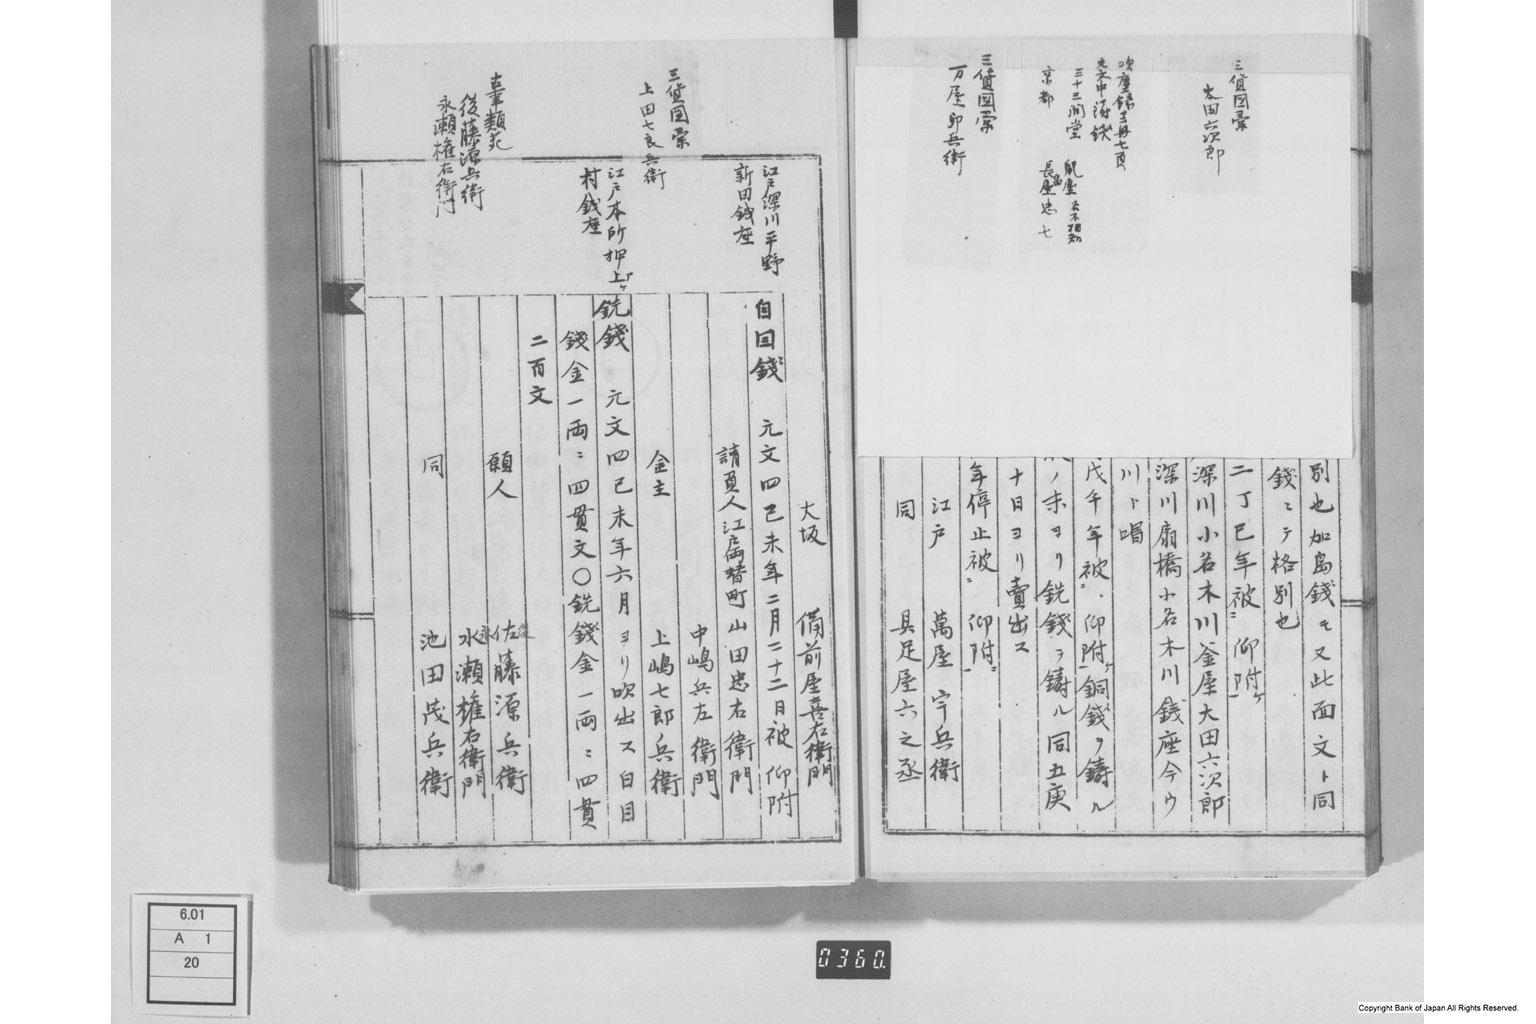 三貨図彙
太田六次郎
吹塵録三册七頁
元文中鋳銭
三十三間堂
京都
長屋忠七
三貨図彙
万屋卯兵衛
別也加島錢モ又此面文ト同
錢ニテ格別也
二丁巳年被 仰附
深川小名木川釜屋大田六次郎
深川扇橋小名木川錢座今ウ
川ト唱
戊午年被 仰附銅錢ヲ鋳ル
ノ末ヨリ銑錢ヲ鋳ル同五庚
十日ヨリ賣出ス
年停止被 仰附
江戸 萬屋 宇兵衛
同 具足屋六之丞
大坂 備前屋喜右衛門
江戸深川平野
新田錢座
自目錢 元文四己未年二月二十二日被 仰附
請負人江戸両替町山田忠右衛門
中嶋兵左衛門
三貨図彙
上田七良兵衛
金主 上嶋七郎兵衛
江戸本所押上ケ
村錢座
銑錢 元文四己未年六月ヨリ吹出ス白目
錢金一両ニ四貫文〇銑錢金一両ニ四貫
二百文
古事類苑
後藤源兵衛
永瀬権右衛門
願人 佐藤源兵衛
水瀬権右衛門
同 池田茂兵衛
6.01
A 1
20
0360.
Copyright Bank of Japan All Rights Reserved.